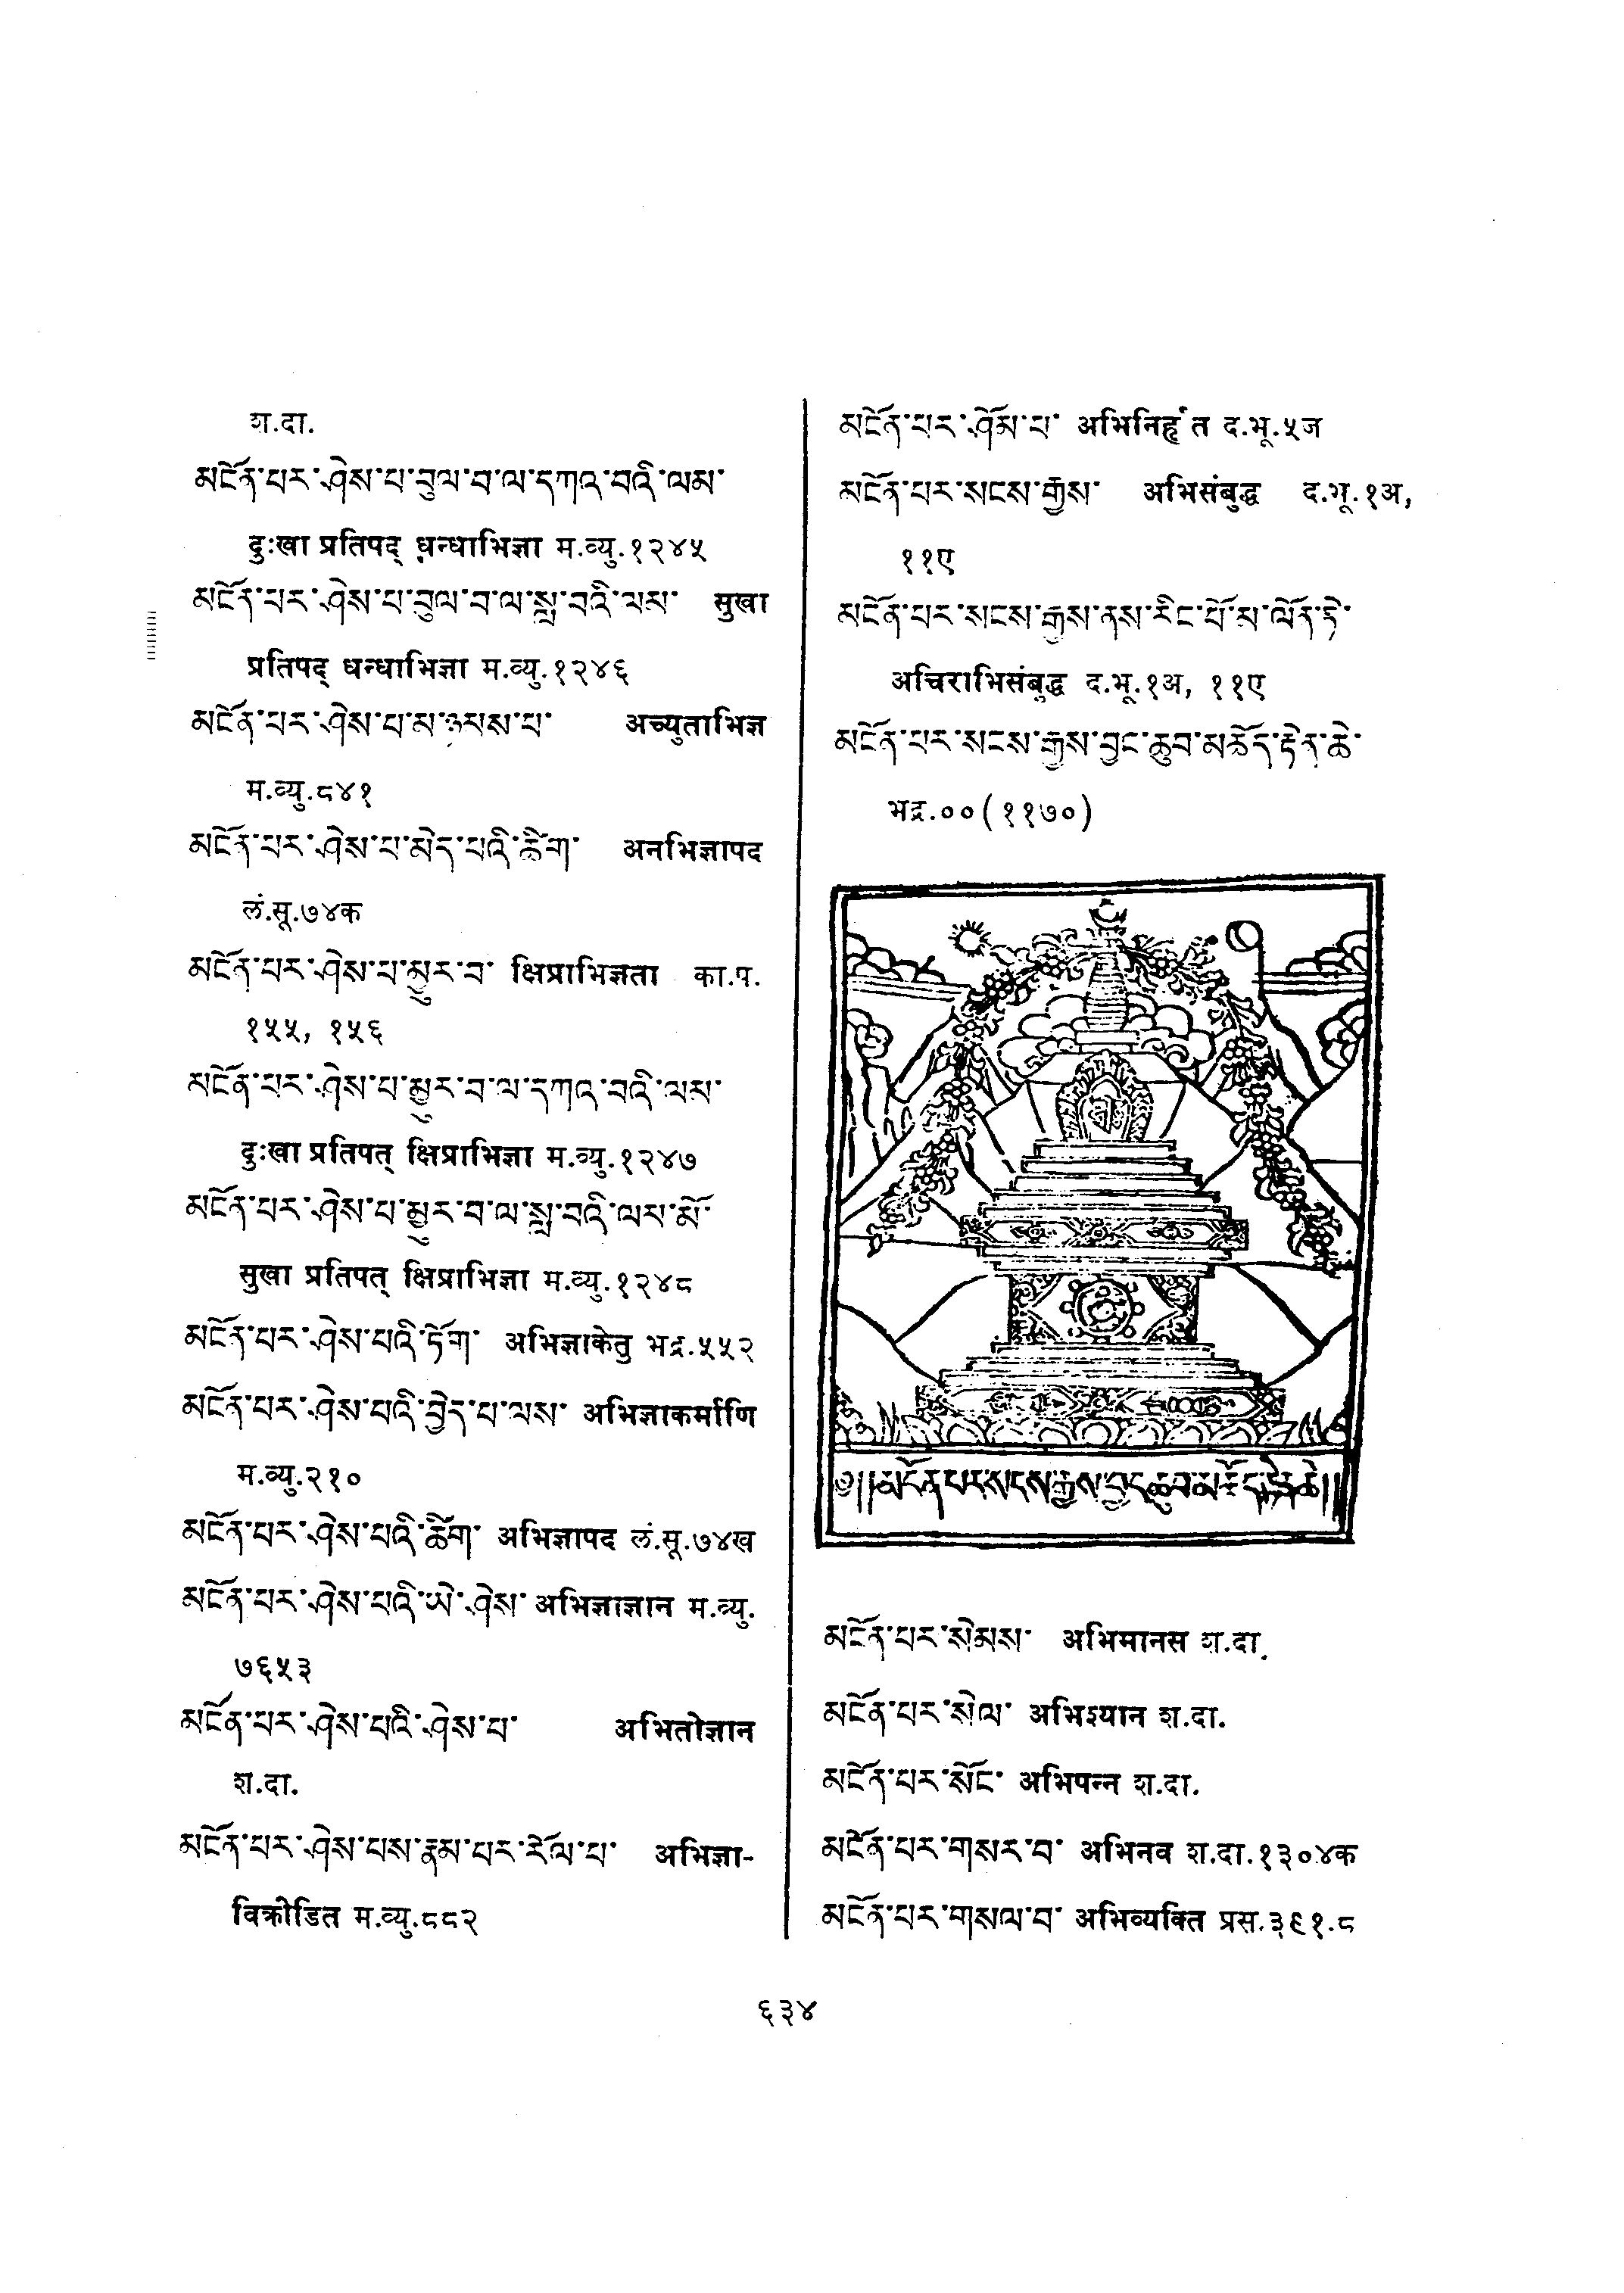 श.दा.
མངོན་པར་ཤེས་པ་བུལ་བ་ལ་དཀའ་བའི་ལམ་
दुःखा प्रतिपद् धन्धाभिज्ञा म.व्यु.१२४५
མངོན་པར་ཤེས་པ་བུལ་བ་ལ་སླ་བའི་ལས་ सुखा
प्रतिपद् धन्धाभिज्ञा म.व्यु.१२४६
མངོན་པར་ཤེས་པ་མ་ཉམས་པ་ अच्युताभिज्ञ
म.व्यु.८४१
མངོན་པར་ཤེས་པ་མེད་པའི་ཚིག་ अनभिज्ञापद
लं.सू.७४क
མངོན་པར་ཤེས་པ་མྱུར་བ་ क्षिप्राभिज्ञता का.प.
१५५, १५६
མངོན་པར་ཤེས་པ་མྱུར་བ་ལ་དཀའ་བའི་ལས་
दुःखा प्रतिपत् क्षिप्राभिज्ञा म.व्यु.१२४७
མངོན་པར་ཤེས་པ་མྱུར་བ་ལ་སླ་བའི་ལས་མོ་
सुखा प्रतिपत् क्षिप्राभिज्ञा म.व्यु.१२४८
མངོན་པར་ཤེས་པའི་ཏོག་ अभिज्ञाकेतु भद्र.५५२
མངོན་པར་ཤེས་པའི་བྱེད་པ་ལས་ अभिज्ञाकर्माणि
म.व्यु.२१०
མངོན་པར་ཤེས་པའི་ཚིག་ अभिज्ञापद लं.सू.७४ख
མངོན་པར་ཤེས་པའི་ཡེ་ཤེས་ अभिज्ञाज्ञान म.व्यु.
७६५३
མངོན་པར་ཤེས་པའི་ཤེས་པ་ अभितोज्ञान
श.दा.
མངོན་པར་ཤེས་པས་རྣམ་པར་རོལ་པ་ अभिज्ञा-
विक्रीडित म.व्यु.८८२
མངོན་པར་ཤོམ་པ་ अभिनिर्हृत द.भू.५ज
མངོན་པར་སངས་རྒྱས་ अभिसंबुद्ध द.भू.१अ,
११ए
མངོན་པར་སངས་རྒྱས་ནས་རིང་པོ་མ་ལོན་ཏེ་
अचिराभिसंबुद्ध द.भू.१अ, ११ए
མངོན་པར་སངས་རྒྱས་བྱང་ཆུབ་མཆོད་རྟེན་ཆེ་
भद्र.००(११७०)
༄།།མངོན་པར་སངས་རྒྱས་བྱང་ཆུབ་མཆོད་རྟེན་ཆེ།།
མངོན་པར་སེམས་ अभिमानस श.दा.
མངོན་པར་སེལ་ श.दा.
མངོན་པར་སོང་ अभिपन्न श.दा.
མངོན་པར་གསར་བ་ अभिनव श.दा.१३०४क
མངོན་པར་གསལ་བ་ अभिव्यक्ति प्रस.३९१.८
६३४